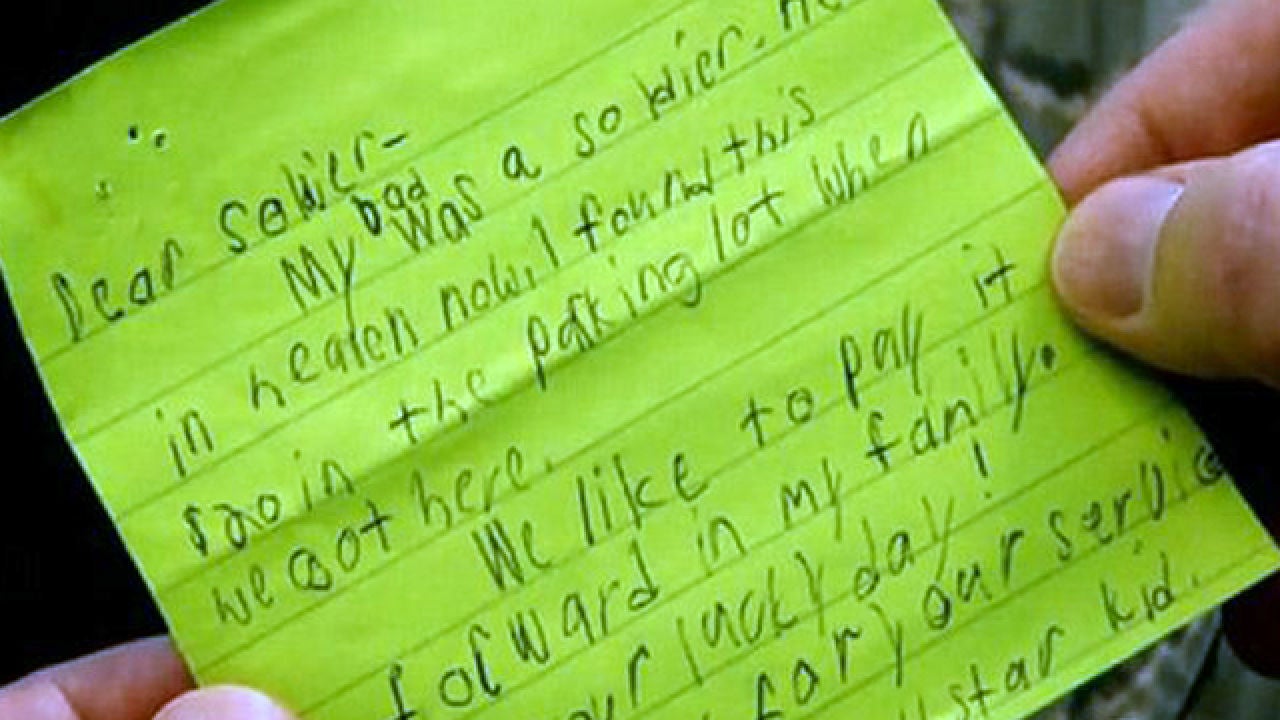 Dear soldier-
My Dad was a soldier. He
in heaven now. I found this
$20 in the parking lot when
we got here.
We like to pay it
forward in my family.
lucky day!
for your service
star kid.